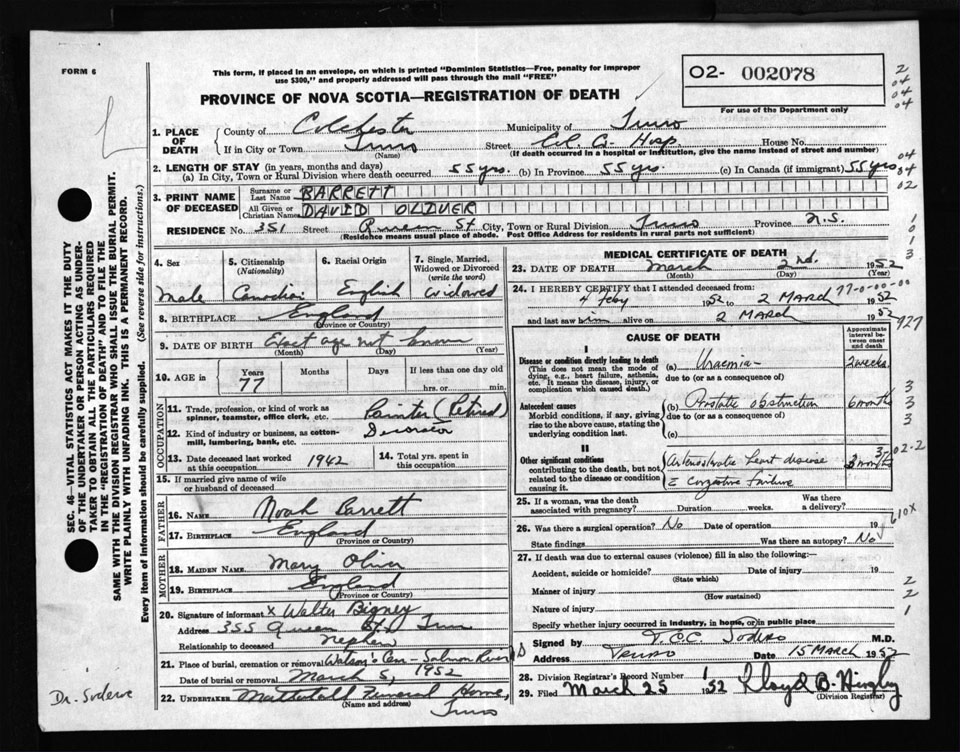 FORM 6
This form, if placed in an envelope, on which is printed "Dominion Statistics—Free, penalty for improper
use $300," and properly addressed will pass through the mail "FREE"
PROVINCE OF NOVA SCOTIA—REGISTRATION OF DEATH
O2- 002078
For use of the Department only
2
04
04
04
1. PLACE OF DEATH
County of Colchester Municipality of Truro
If in City or Town Truro Street Col. Co. Hosp House No.
(Name) (If death occurred in a hospital or institution, give the name instead of street and number)
2. LENGTH OF STAY (in years, months and days)
(a) In City, Town or Rural Division where death occurred 55 yrs. (b) In Province 55 yrs. (c) In Canada (if immigrant) 55 yrs
04
34
02
3. PRINT NAME OF DECEASED
Surname or Last Name BARRETT
All Given or Christian Names DAVID OLIVER
RESIDENCE No. 351 Street Queen St City, Town or Rural Division Truro Province N.S.
(Residence means usual place of abode. Post Office Address for residents in rural parts not sufficient)
1
0
1
3
4. Sex
Male
5. Citizenship (Nationality)
Canadian
6. Racial Origin
English
7. Single, Married, Widowed or Divorced (write the word)
Widowed
8. BIRTHPLACE England
(Province or Country)
9. DATE OF BIRTH Exact age not known
(Month) (Day) (Year)
10. AGE in Years 77 Months Days If less than one day old
hrs. or min.
OCCUPATION
11. Trade, profession, or kind of work as spinner, teamster, office clerk, etc. Painter (Retired)
12. Kind of industry or business, as cotton-mill, lumbering, bank, etc. Decorator
13. Date deceased last worked at this occupation 1942
14. Total yrs. spent in this occupation
15. If married give name of wife or husband of deceased
FATHER
16. NAME Noah Barrett
17. BIRTHPLACE England
(Province or Country)
MOTHER
18. MAIDEN NAME Mary Oliver
19. BIRTHPLACE England
(Province or Country)
20. Signature of informant x Walter Bigney
Address 355 Queen St. Truro
Relationship to deceased nephew
21. Place of burial, cremation or removal Watson's Cem - Salmon River
Date of burial or removal March 5, 1952
22. UNDERTAKER Mattatall Funeral Home,
(Name and address) Truro
MEDICAL CERTIFICATE OF DEATH
23. DATE OF DEATH March 2nd. 1952
(Month) (Day) (Year)
24. I HEREBY CERTIFY that I attended deceased from:
77-0-00-00
4 Feby 1952 to 2 March 1952
and last saw him alive on 2 March 1952
927
CAUSE OF DEATH
Approximate interval between onset and death
I
Disease or condition directly leading to death
(This does not mean the mode of dying, e.g., heart failure, asthenia, etc. It means the disease, injury, or complication which caused death.)
(a) Uraemia 2 weeks
due to (or as a consequence of)
Antecedent causes
Morbid conditions, if any, giving rise to the above cause, stating the underlying condition last.
(b) Prostate obstruction 6 months
due to (or as a consequence of)
(c)
3
3
3
3
II
Other significant conditions
contributing to the death, but not related to the disease or condition causing it.
Arteriosclerotic heart disease
c̄ congestive failure
3 months
02-2
25. If a woman, was the death associated with pregnancy? Duration weeks. Was there a delivery?
26. Was there a surgical operation? No Date of operation 19
State findings Was there an autopsy? No
610X
27. If death was due to external causes (violence) fill in also the following:—
Accident, suicide or homicide? Date of injury 19
(State which)
Manner of injury
(How sustained)
Nature of injury
Specify whether injury occurred in industry, in home, or in public place
2
2
1
Signed by M.D.
Address Truro Date 15 March 1952
28. Division Registrar's Record Number
29. Filed March 25 1952 Lloyd B.
(Division Registrar)
SEC. 46—VITAL STATISTICS ACT MAKES IT THE DUTY
OF THE UNDERTAKER OR PERSON ACTING AS UNDER-
TAKER TO OBTAIN ALL THE PARTICULARS REQUIRED
IN THE "REGISTRATION OF DEATH" AND TO FILE THE
SAME WITH THE DIVISION REGISTRAR WHO SHALL ISSUE THE BURIAL PERMIT.
WRITE PLAINLY WITH UNFADING INK. THIS IS A PERMANENT RECORD.
Every item of information should be carefully supplied. (See reverse side for instructions.)